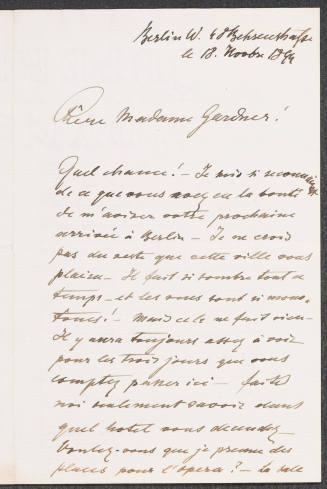 Berlin W. 48 Behrenstrasse
le 18. Novbr 1894
Chère Madame Gardner!
Quel chance! – Je suis si reconnaissant
de ce que vous avez eu la bonté
de m'aviser votre prochaine
arrivée à Berlin – Je ne crois
pas du reste que cette ville vous
plaira – Il fait si sombre tout ce
temps – et les rues sont si mono-
tones! – Mais cela ne fait rien –
Il y aura toujours assez à voir
pour les trois jours que vous
comptez passer ici – faites
moi seulement savoir dans
quel hotel vous descendez
Voulez-vous que je prenne des
places pour l'opera? – La sale